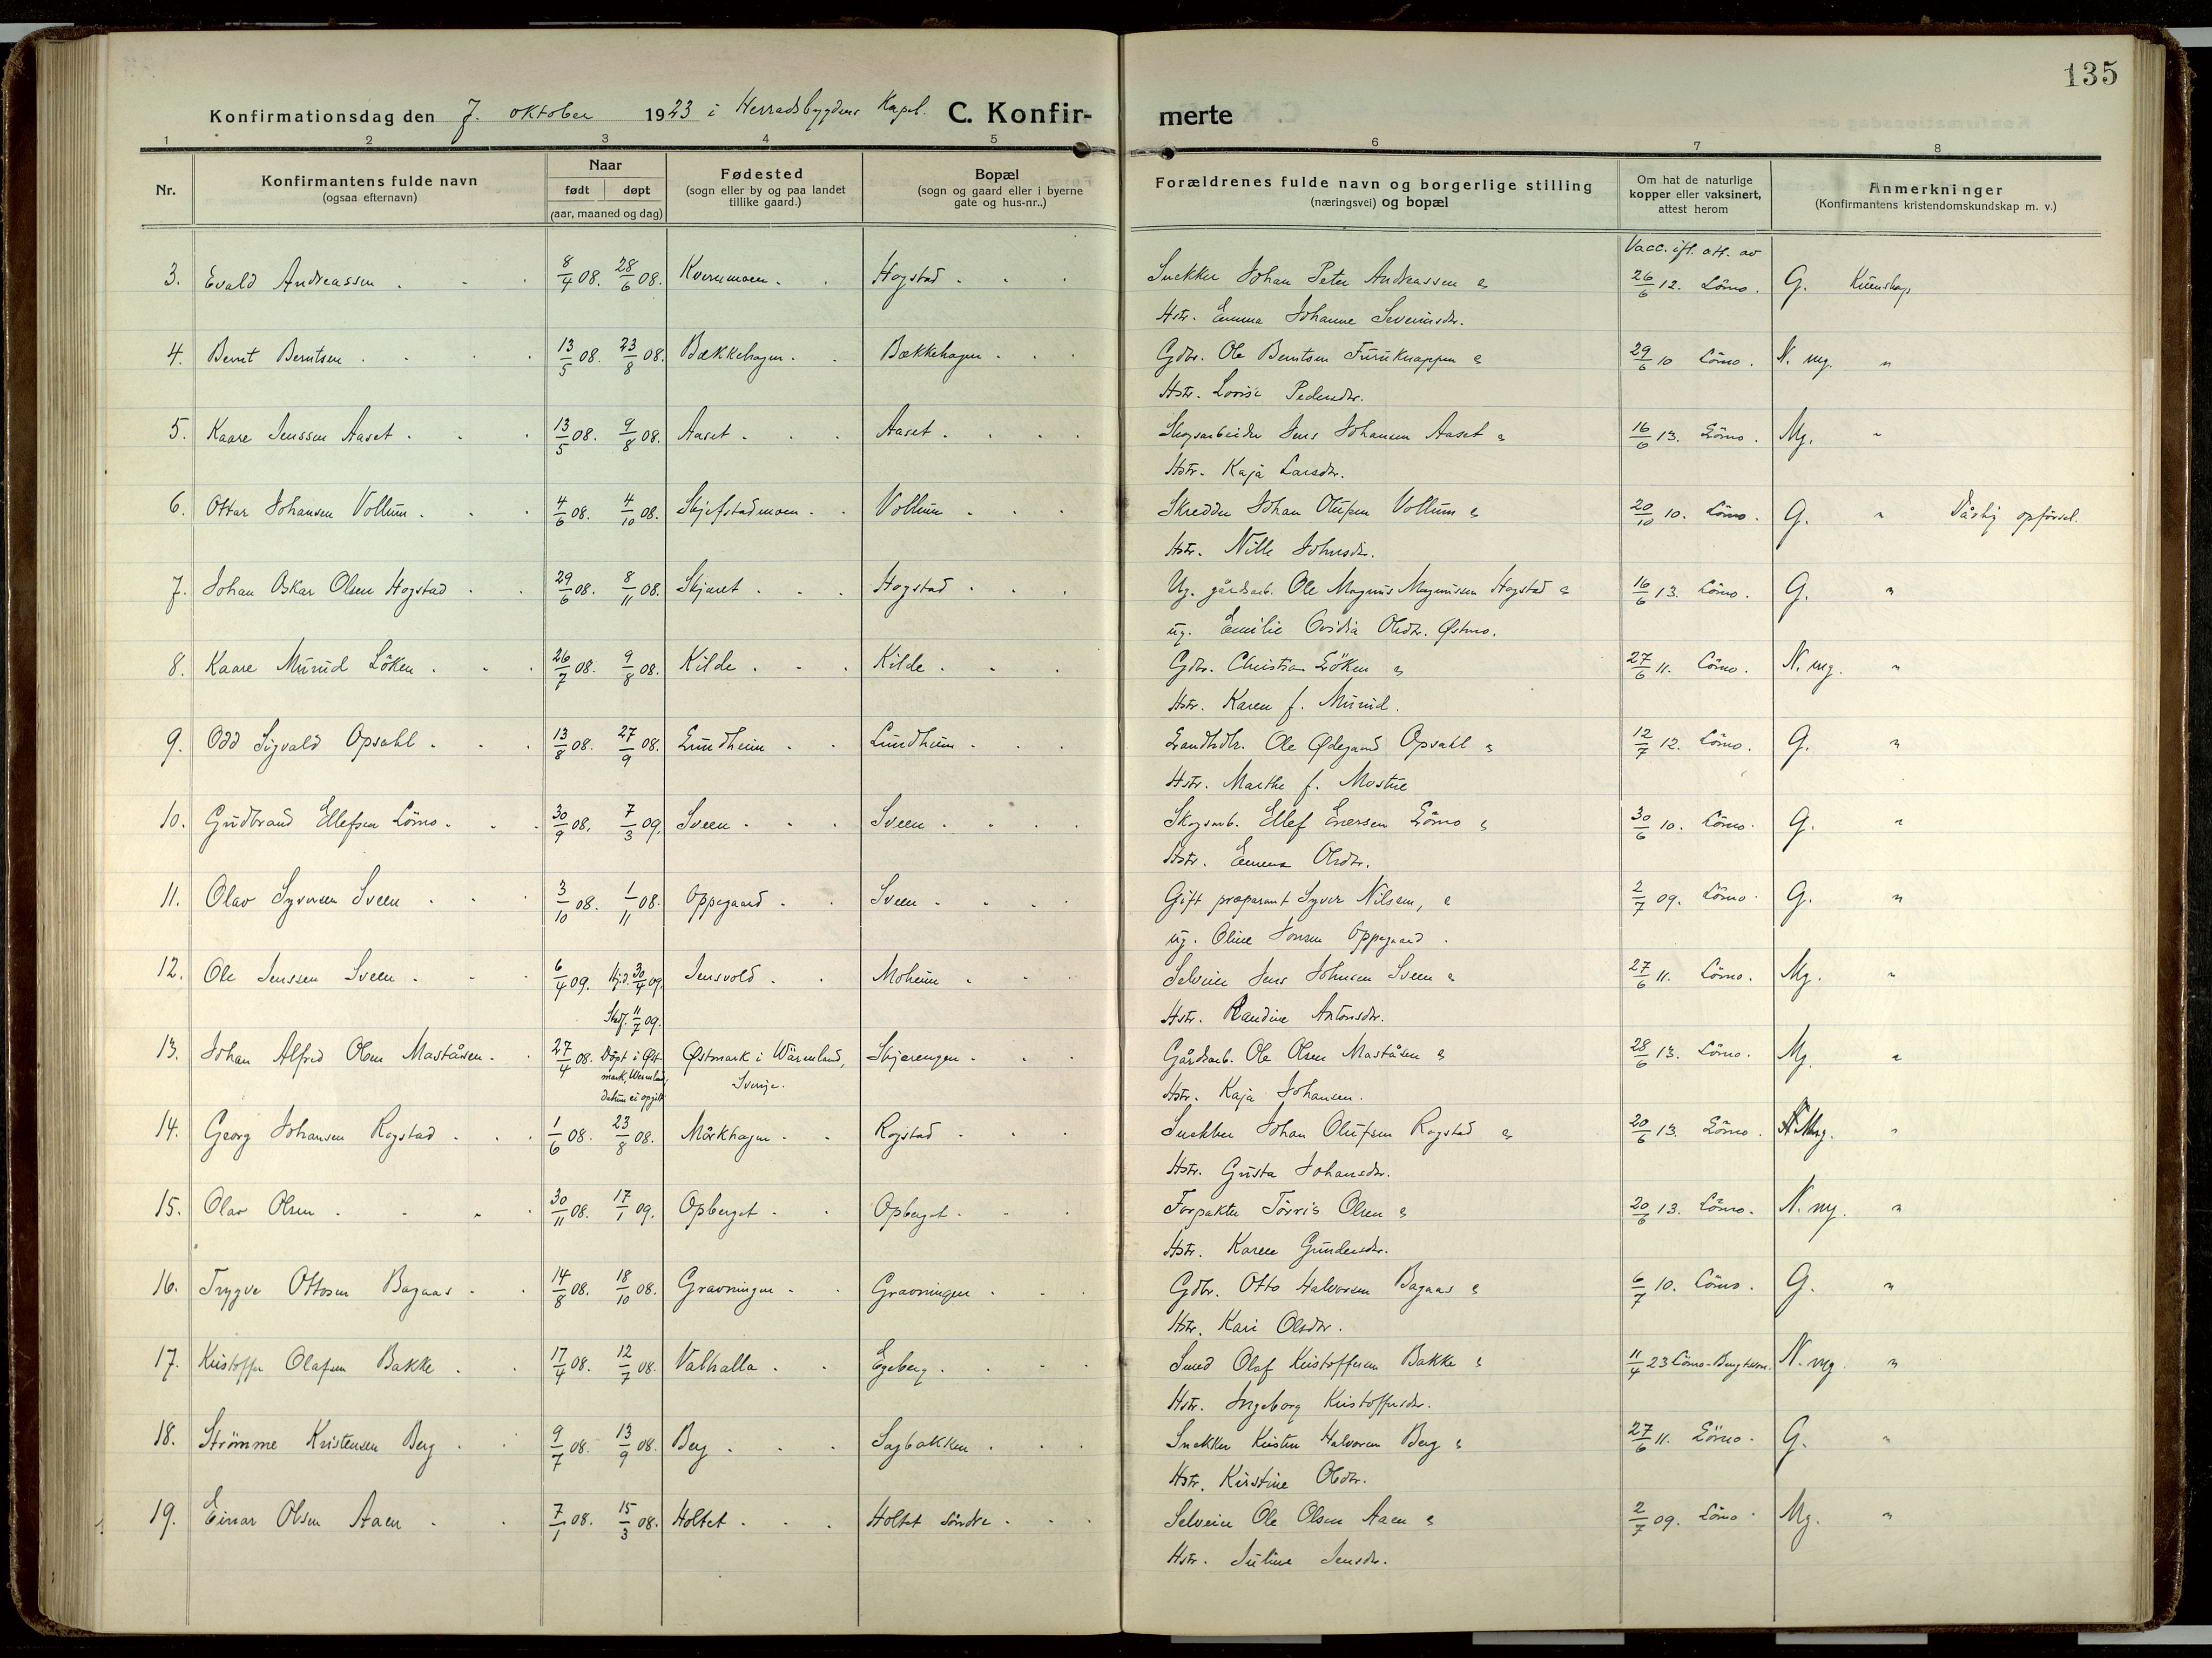 135
Konfirmationsdag den 7. oktober 1923 i Herradsbygdens Kapel. C. Konfirmerte
1 2 3 4 5 6 7 8
Nr.
Konfirmantens fulde navn
(ogsaa efternavn)
Naar
født døpt
(aar, maaned og dag)
Fødested
(sogn eller by og paa landet
tillike gaard.)
Bopæl
(sogn og gaard eller i byerne
gate og hus-nr..)
Forældrenes fulde navn og borgerlige stilling
(næringsvei) og bopæl
Om hat de naturlige
kopper eller vaksinert,
attest herom
Anmerkninger
(Konfirmantens kristendomskundskap m. v.)
Vacc. ifl. att. av
3. Evald Andreassen 8/4 08. 28/6 08. Kvernmoen Hogstad Snekker Johan Peter Andreassen & 26/6 12. Lömo. G. Kundskap
Hstr. Emma Johanne Severinsdtr.
4. Bernt Berntsen 13/5 08. 23/8 08. Bækkehagen Bækkehagen Gdbr. Ole Berntsen Furuknappen & 29/6 10 Lömo. N. mg. "
Hstr. Lovise Pedersdtr.
5. Kaare Jenssen Aaset 13/5 08. 9/8 08. Aaset Aaset Skogsarbeider Jens Johansen Aaset & 16/6 13. Lömo. Mg. "
Hstr. Kaja Larsdtr.
6. Ottar Johansen Vollum 4/6 08. 4/10 08. Skjefstadmoen Vollum Skredder Johan Olufsen Vollum & 20/10 10. Lömo. G. " Dårlig opförsel.
Hstr. Nille Johnsdtr.
7. Johan Oskar Olsen Hogstad 29/6 08. 8/11 08. Skjæret Hogstad Ug. gårdsarb. Ole Magnus Magnussen Hogstad & 16/6 13. Lömo. G. "
ug. Emilie Ovidia Olsdtr. Østmo.
8. Kaare Munid Löken 26/7 08. 9/8 08. Kilde Kilde Gdbr. Christian Löken & 27/6 11. Lömo. N. mg. "
Hstr. Karen f. Munid.
9. Odd Sigvald Opsahl 13/8 08. 27/9 08. Lundheim Lundheim Landhdlr. Ole Ødegaard Opsahl & 12/7 12. Lömo. G. "
Hstr. Marthe f. Mostue
10. Gudbrand Ellefsen Lömo 30/9 08. 7/3 09. Sveen Sveen Skogsarb. Ellef Enersen Lömo & 30/6 10. Lömo. G. "
Hstr. Emma Olsdtr.
11. Olav Syversen Sveen 3/10 08. 1/11 08. Oppegaard Sveen Gift præparant Syver Nilssen, & 2/7 09. Lömo. G. "
ug. Oline Jonsen Oppegaard.
12. Ole Jenssen Sveen 6/4 09. Hj.d. 30/4 09. Jensvold Moheim Selveier Jens Johnsen Sveen & 27/6 11. Lömo. Mg. "
Stadf. 11/7 09. Hstr. Randine Antonsdtr.
13. Johan Alfred Olsen Maståsen 27/4 08. Döpt i Østmark, Wermland, datum ei opgitt Østmark i Wärmland, Sverige. Skjærengen Gårdsarb. Ole Olsen Maståsen & 28/6 13. Lömo. Mg. "
Hstr. Kaja Johansen.
14. Georg Johansen Rogstad 1/6 08. 23/8 08. Mörkhagen Rogstad Snekker Johan Olufsen Rogstad & 20/6 13. Lömo. Mg. "
Hstr. Gusta Johansdtr.
15. Olav Olsen 30/11 08. 17/1 09. Opberget Opberget Forpakter Törris Olsen & 20/6 13. Lömo. N. mg. "
Hstr. Karen Gundersdtr.
16. Trygve Ottosen Bagaas 14/8 08. 18/10 08. Gravningen Gravningen Gdbr. Otto Halvorsen Bagaas & 6/7 10. Lömo. G. "
Hstr. Kari Olsdtr.
17. Kristoffer Olafsen Bakke 17/4 08. 12/7 08. Valhalla Egeberg Smed Olaf Kristoffersen Bakke & 11/4 23 Lömo-Bergtsen. N. mg. "
Hstr. Ingeborg Kristoffersdtr.
18. Strömme Kristensen Berg 9/7 08. 13/9 08. Berg Sagbakken Snekker Kristen Halvorsen Berg & 27/6 11. Lömo. G. "
Hstr. Kirstine Olsdtr.
19. Einar Olsen Aaen 7/1 08. 15/3 08. Holtet Holtet söndre Selveier Ole Olsen Aaen & 2/7 09. Lömo. Mg. "
Hstr. Juline Jensdtr.